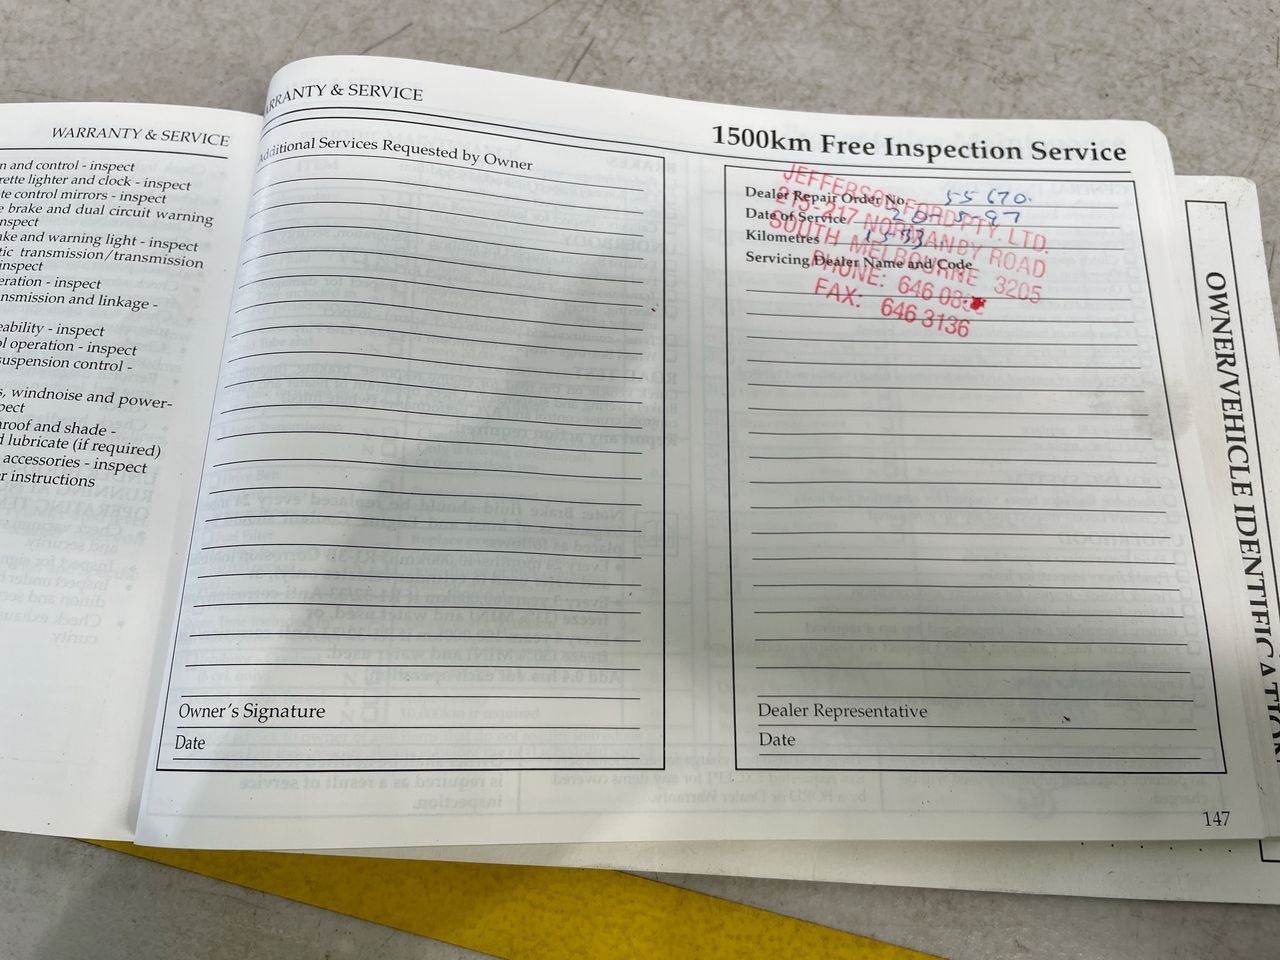 WARRANTY & SERVICE
n and control - inspect
rette lighter and clock - inspect
te control mirrors - inspect
e brake and dual circuit warning
nspect
ke and warning light - inspect
tic transmission/transmission
inspect
eration - inspect
nsmission and linkage -
eability - inspect
ol operation - inspect
suspension control -
s, windnoise and power-
pect
nroof and shade -
d lubricate (if required)
accessories - inspect
er instructions
RRANTY & SERVICE
Additional Services Requested by Owner
Owner's Signature
Date
1500km Free Inspection Service
Dealer Repair Order No. 55670.
Date of Service 20-5-97
Kilometres 1533
Servicing Dealer Name and Code
JEFFERSON FORD PTY. LTD.
215-217 NORMANBY ROAD
SOUTH MELBOURNE 3205
PHONE: 646 08
FAX: 646 3136
Dealer Representative
Date
147
OWNER/VEHICLE IDENTIFICATION